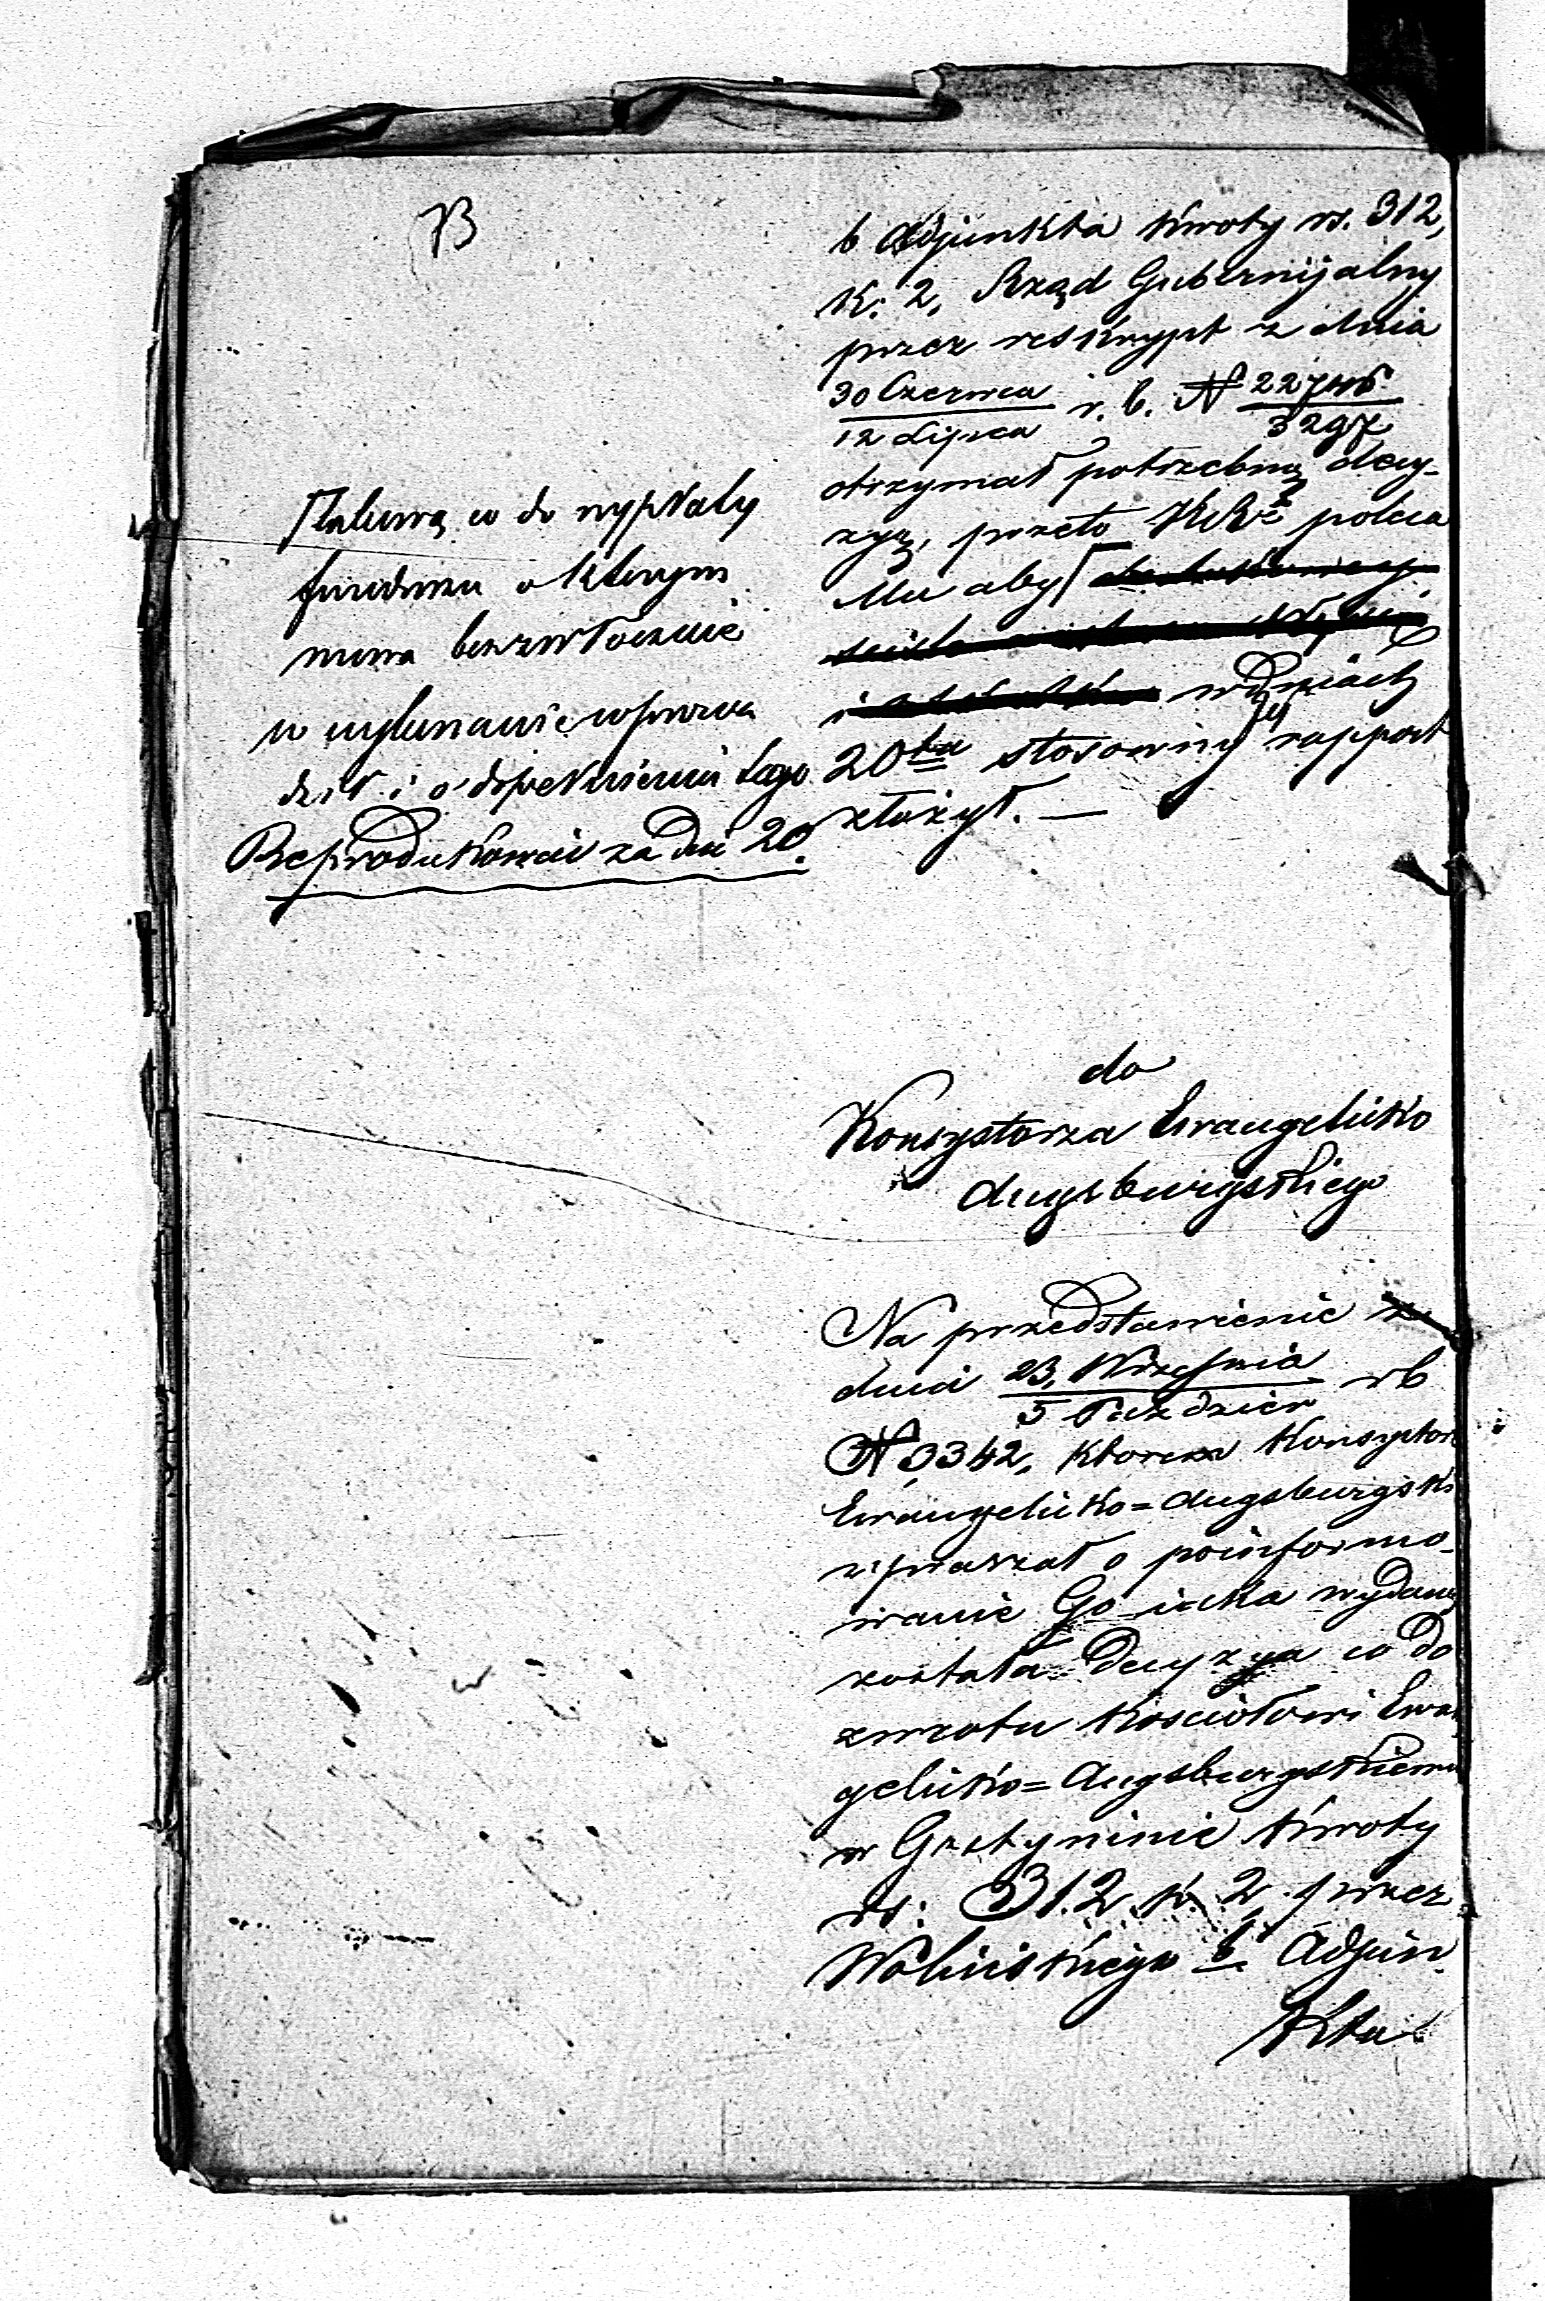 b Adjunkta kwoty rs. 312,
k: 2, Rząd Gubernijalny
przez reskrypt z dnia
30 Czerwca
12 Lipca
r. b. N 22746
3297
otrzymał potrzebną decy-
zyą, przeto polea
Mu aby
i w dniach
20tu stosowny rapport
złożył. —
co do wypłaty
funduszu o którym
mowa bezzwłocznie
w wykonanie wprowa
dził i o dopełnieniu tego
Reprodukować za dni 20.
do
Konsystorza Ewangelicko
Augsburgskiego
Na przedstawienie z
dnia 23, Września
5 Paździer
r b
N 3342, którem Konsystorz
Ewangelicko=Augsburgski
upraszał o poinformo-
wanie Go iaka wydaną
została Decyzya co do
zwrotu Kościołowi Ewan
gelicko=Augsburgskiemu
w kwoty
rs: 312 k. 2 przez
Wolińskiego b. Adjun
kta